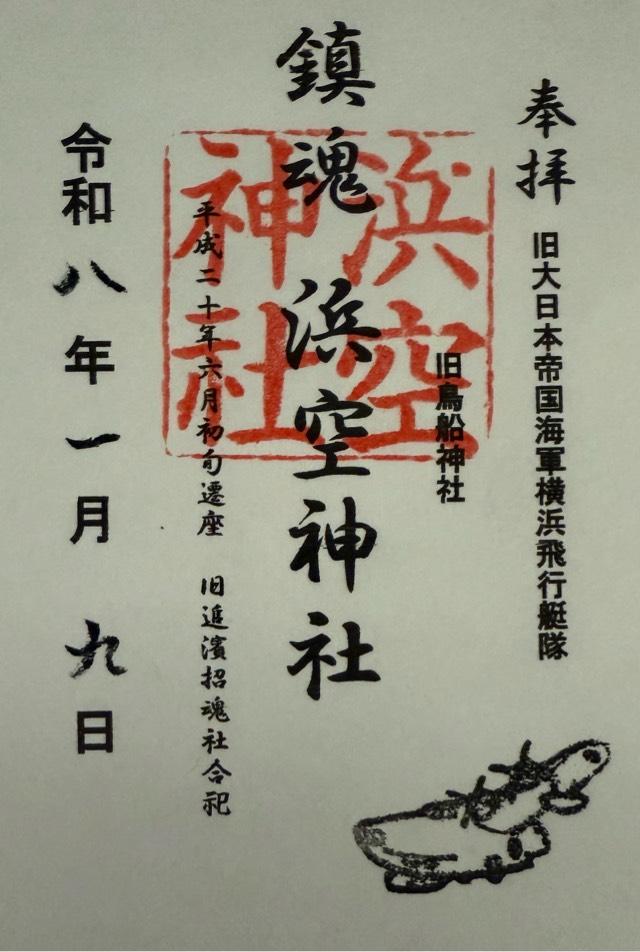 奉拝
旧大日本帝国海軍横浜飛行艇隊
旧鳥船神社
鎮魂 浜空神社
浜空
神社
平成二十年六月初旬遷座 旧追濱招魂社合祀
令和八年一月九日